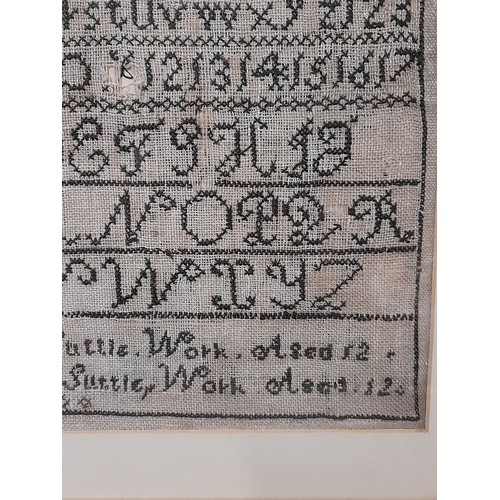 stUVWXYZ123
12 13 14 15 16 17
EFGHIJ
NOPQR
WXYZ
Suttle. Work. Aged 12.
Suttle, Work Aged. 12.